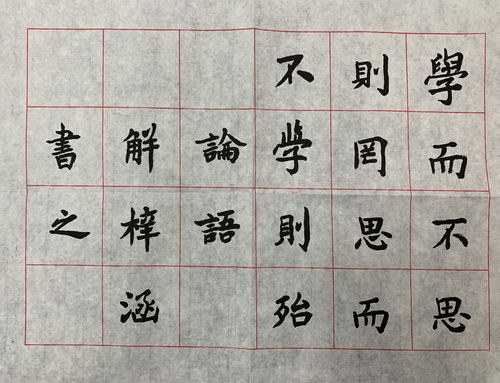 學而不思
則罔思而
不學則殆
論語
解梓涵
書之